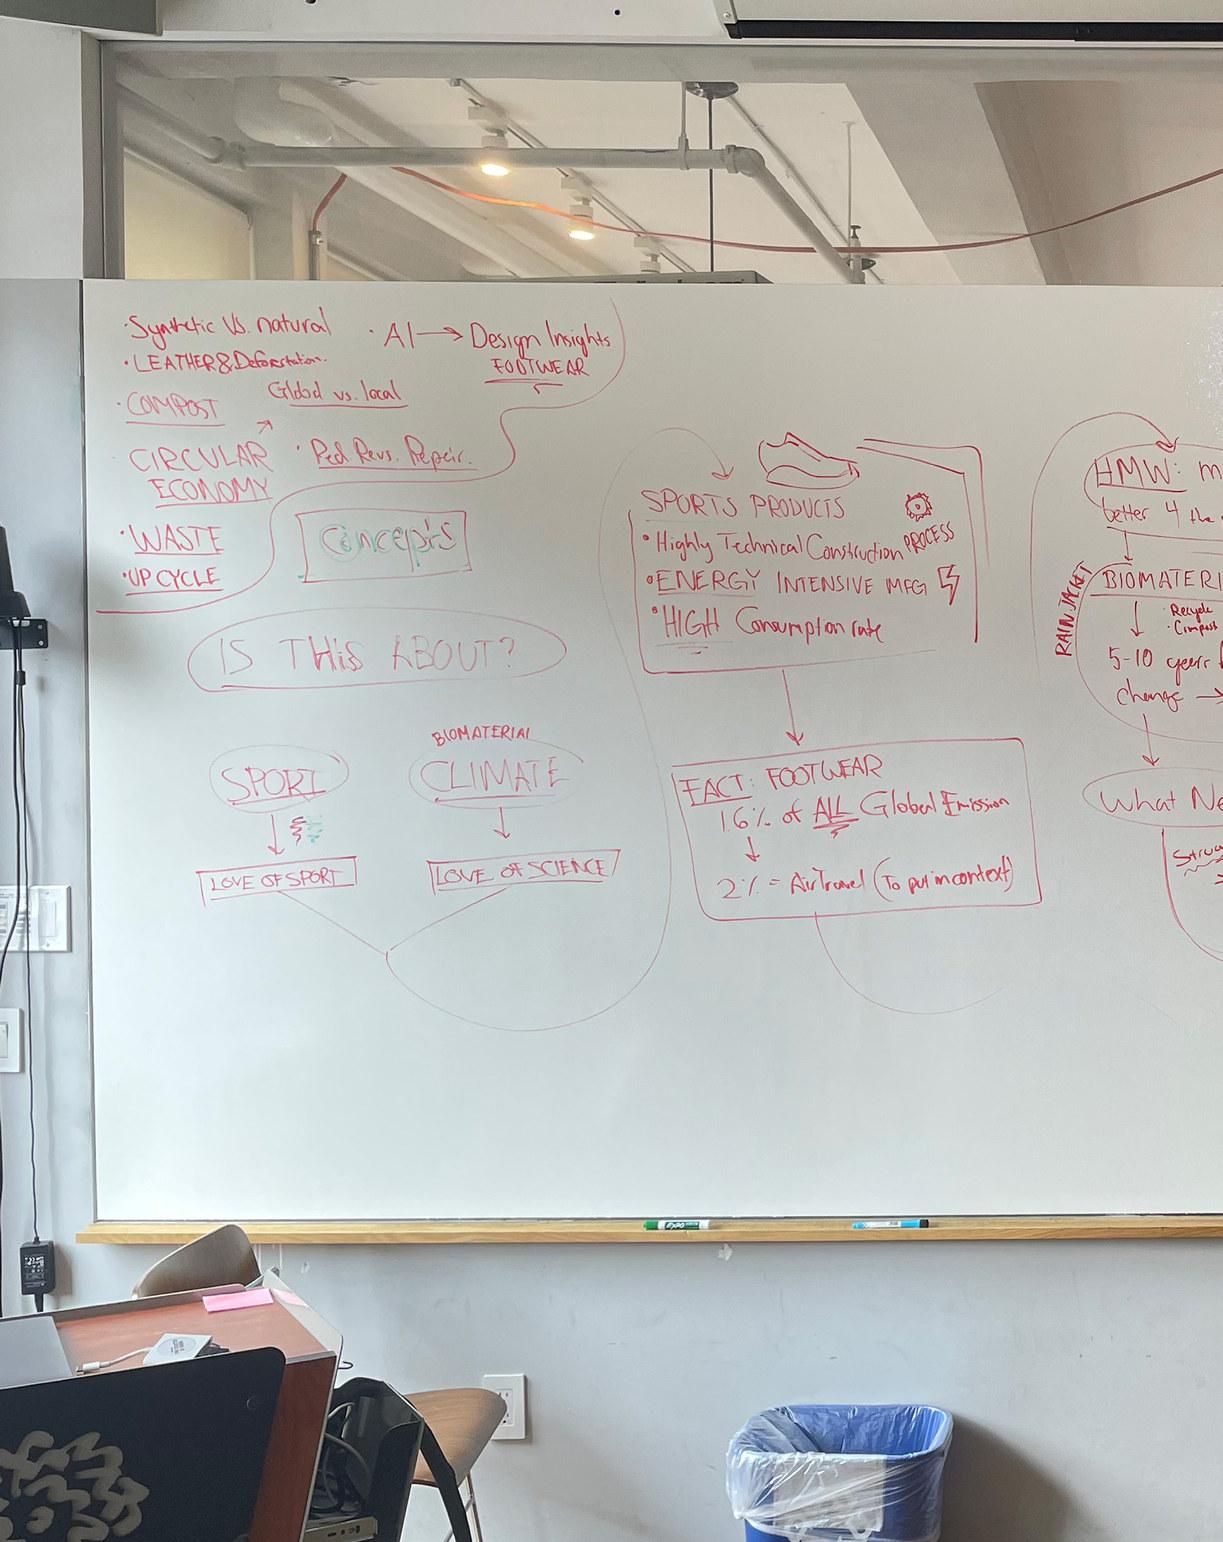 ·Synthetic Vs. natural
·LEATHER&Deforestation.
·COMPOST
Global vs. local
CIRCULAR
ECONOMY
·WASTE
·UPCYCLE
·AI → Design Insights
FOOTWEAR
Concepts
IS THiS ABOUT?
SPORT
LOVE OF SPORT
BIOMATERIAL
CLIMATE
LOVE OF SCIENCE
SPORTS PRODUCTS
·Highly Technical Construction PROCESS
·ENERGY INTENSIVE MFG
·HIGH Consumption rate
FACT: FOOTWEAR
1.6% of ALL Global Emission
2% = AirTravel (To put in context)
HMW:
better 4 the
RAIN JACKET
BIOMATERI
· Recycle
· Compost
5-10 years
change →
What Ne
EXPO